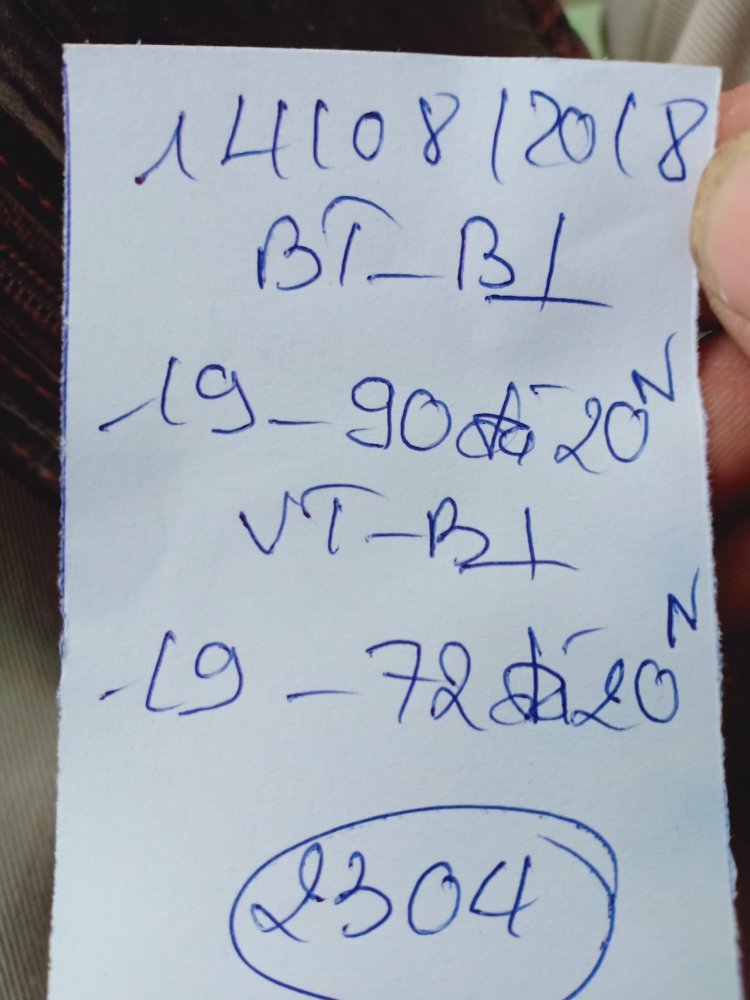 14/08/2018
BT - B⊥
19 - 90 đá 20N
VT - B⊥
19 - 72 đá 20N
2304